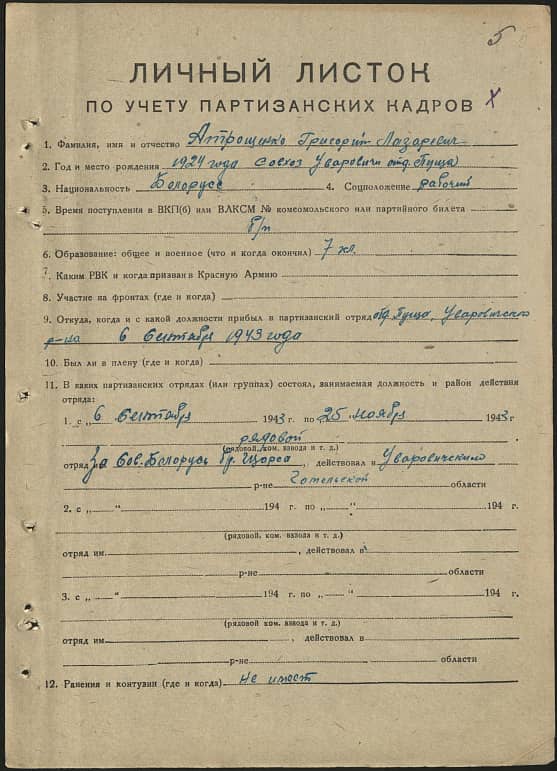 5
ЛИЧНЫЙ ЛИСТОК
ПО УЧЕТУ ПАРТИЗАНСКИХ КАДРОВ х
1. Фамилия, имя и отчество Атрощенко Григорий Лазаревич
2. Год и место рождения 1924 года Совхоз Уваровичи отд. Пуща
3. Национальность Белорусс 4. Соцположение рабочий
5. Время поступления в ВКП(б) или ВЛКСМ № комсомольского или партийного билета
б/п
6. Образование: общее и военное (что и когда окончил) 7 кл.
7. Каким РВК и когда призван в Красную Армию
8. Участие на фронтах (где и когда)
9. Откуда, когда и с какой должности прибыл в партизанский отряд отд. Пуща, Уваровичского
р-на 6 Сентября 1943 года
10. Был ли в плену (где и когда)
11. В каких партизанских отрядах (или группах) состоял, занимаемая должность и район действия
отряда:
1. с 6 Сентября 1943 г. по 25 ноября 1943 г
рядовой
(рядовой, ком. взвода и т. д.)
отряд За Сов. Белорусь бр. Щорса, действовал в Уваровичском
р-не Гомельской области
2. с „ “ 194 г. по „ “ 194 г.
(рядовой, ком. взвода и т. д.)
отряд им. , действовал в
р-не области
3. с „ “ 194 г. по „ “ 194 г.
(рядовой, ком. взвода и т. д.)
отряд им. , действовал в
р-не области
12. Ранения и контузии (где и когда) Не имеет